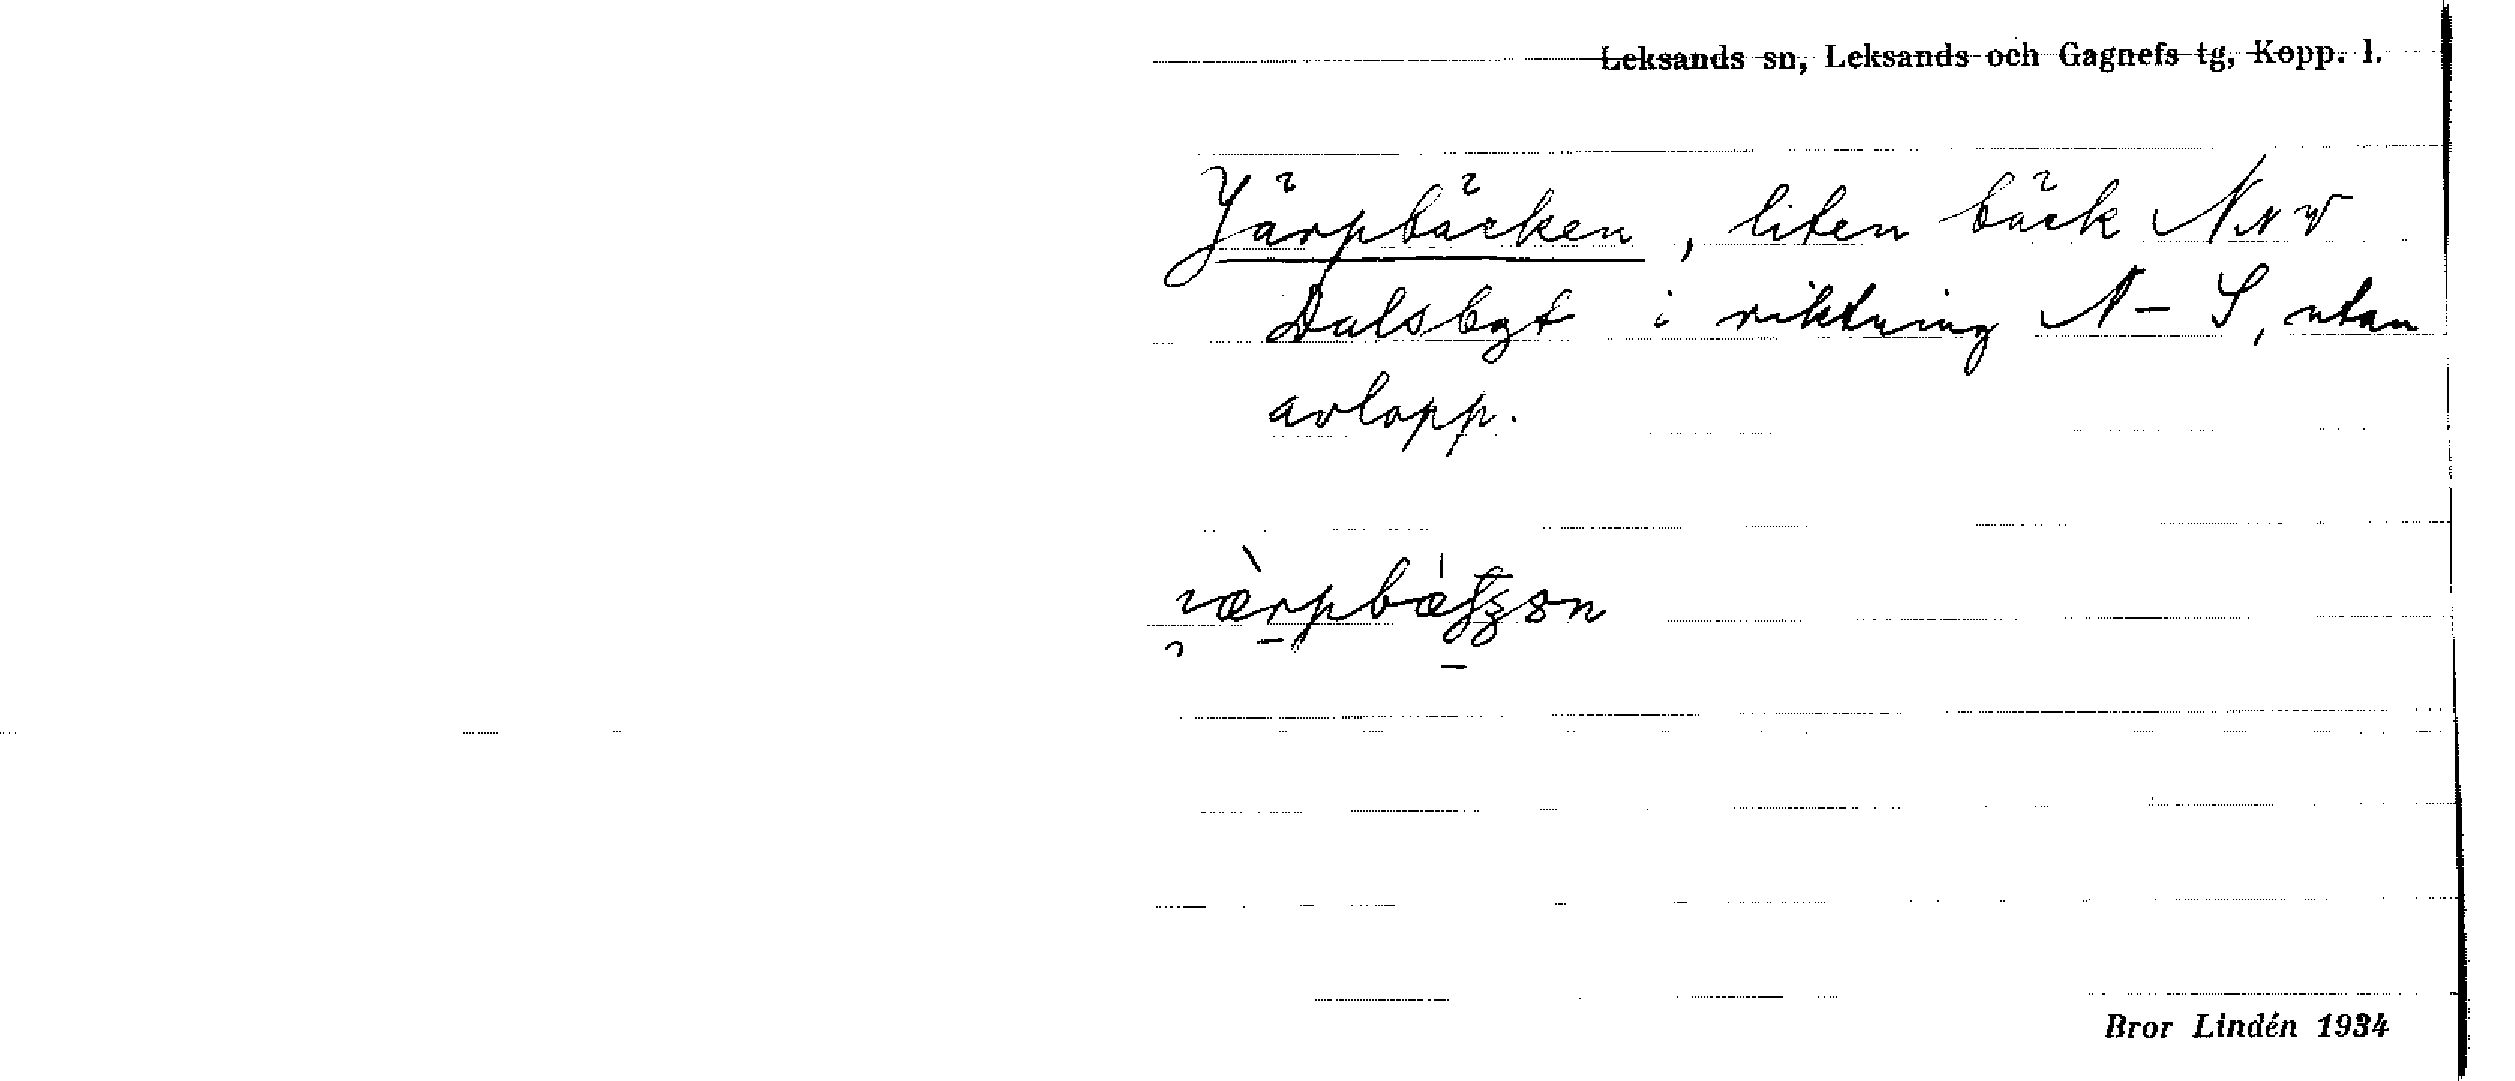 Leksands sn, Leksands och Gagnefs tg, Kopp. l.
Järpbäcken, liten bäck NNV
Dalsbyt i riktning N-S, utan
avlopp.
Bror Lindén 1934